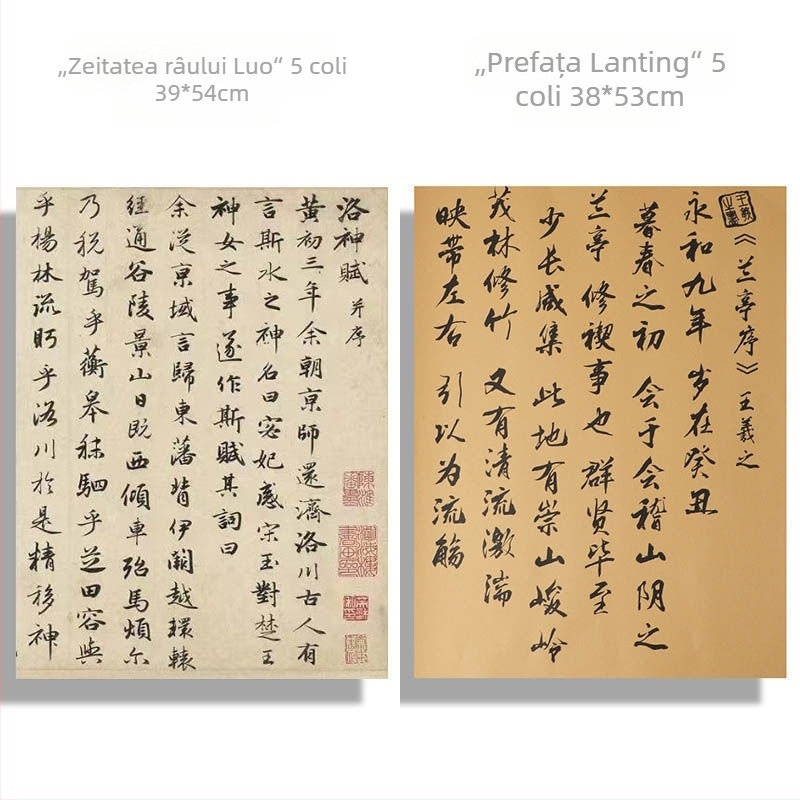 „Zeitatea râului Luo“ 5 coli
39*54cm
„Prefața Lanting“ 5
coli 38*53cm
洛神賦 并序
黃初三年余朝京師還濟洛川古人有
言斯水之神名曰宓妃感宋玉對楚王
神女之事遂作斯賦其詞曰
余從京域言歸東藩背伊闕越轘轅
經通谷陵景山日既西傾車殆馬煩尔
乃稅駕乎蘅皋秣駟乎芝田容與
乎楊林流眄乎洛川於是精移神
《兰亭序》王羲之
永和九年岁在癸丑
暮春之初会于会稽山阴之
兰亭修禊事也群贤毕至
少长咸集此地有崇山峻岭
茂林修竹又有清流激湍
映带左右引以为流觞